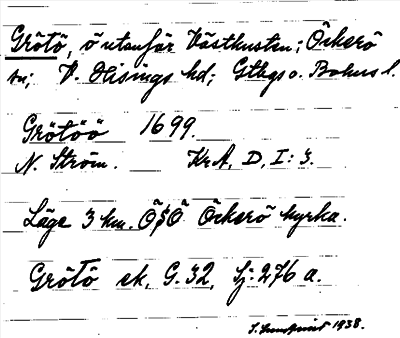 Grötö, ö utanför Västkusten; Öckerö
sn; V. Hisings hd; Gtbgs o. Bohus l.
Grötöö 1699.
N. Ström. KrA, D, I: 3.
Läge 3 km. ÖSÖ Öckerö kyrka.
Grötö ek. G. 32, Sj. 276 a.
S. Lundquist 1938.